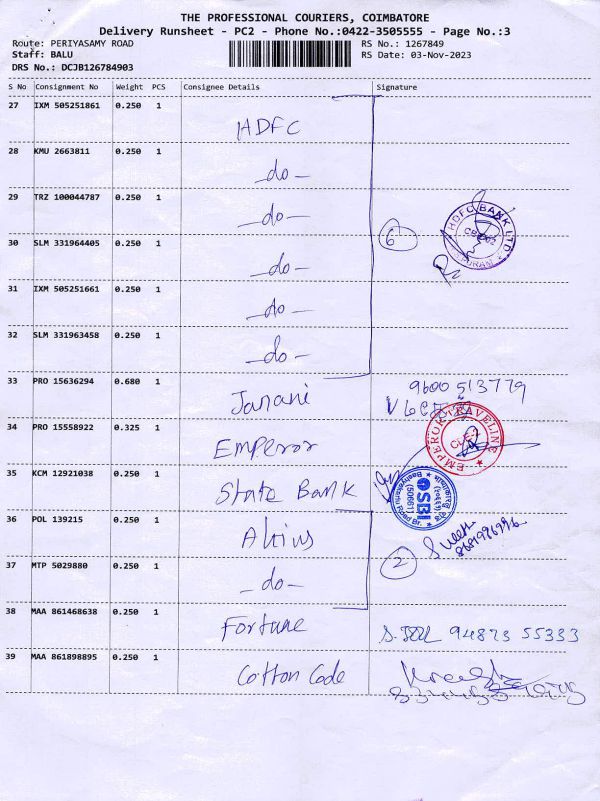 THE PROFESSIONAL COURIERS, COIMBATORE
Delivery Runsheet - PC2 - Phone No.:0422-3505555 - Page No.:3
Route: PERIYASAMY ROAD RS No.: 1267849
Staff: BALU RS Date: 03-Nov-2023
DRS No.: DCJB126784903
S No Consignment No Weight PCS Consignee Details Signature
27 IXM 505251861 0.250 1
HDFC
28 KMU 2663811 0.250 1
-do-
29 TRZ 100044787 0.250 1
-do-
HDFC BANK LTD
6
30 SLM 331964405 0.250 1
-do-
31 IXM 505251661 0.250 1
-do-
32 SLM 331963458 0.250 1
-do-
33 PRO 15636294 0.680 1
Janani 9600 513779
34 PRO 15558922 0.325 1
EMPEROR TRAVELINE
CBE-2
Emperor
35 KCM 12921038 0.250 1
State Bank
SBI
(50661)
36 POL 139215 0.250 1
37 MTP 5029880 0.250 1
2
-do-
38 MAA 861468638 0.250 1
Fortune 94873 55333
39 MAA 861898895 0.250 1
Cotton Code